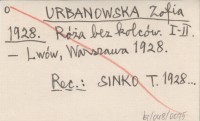 o URBANOWSKA Zofia
1928. Róża bez kolców. I-II.
– Lwów, Warszawa 1928.
Rec.: SINKO T. 1928...